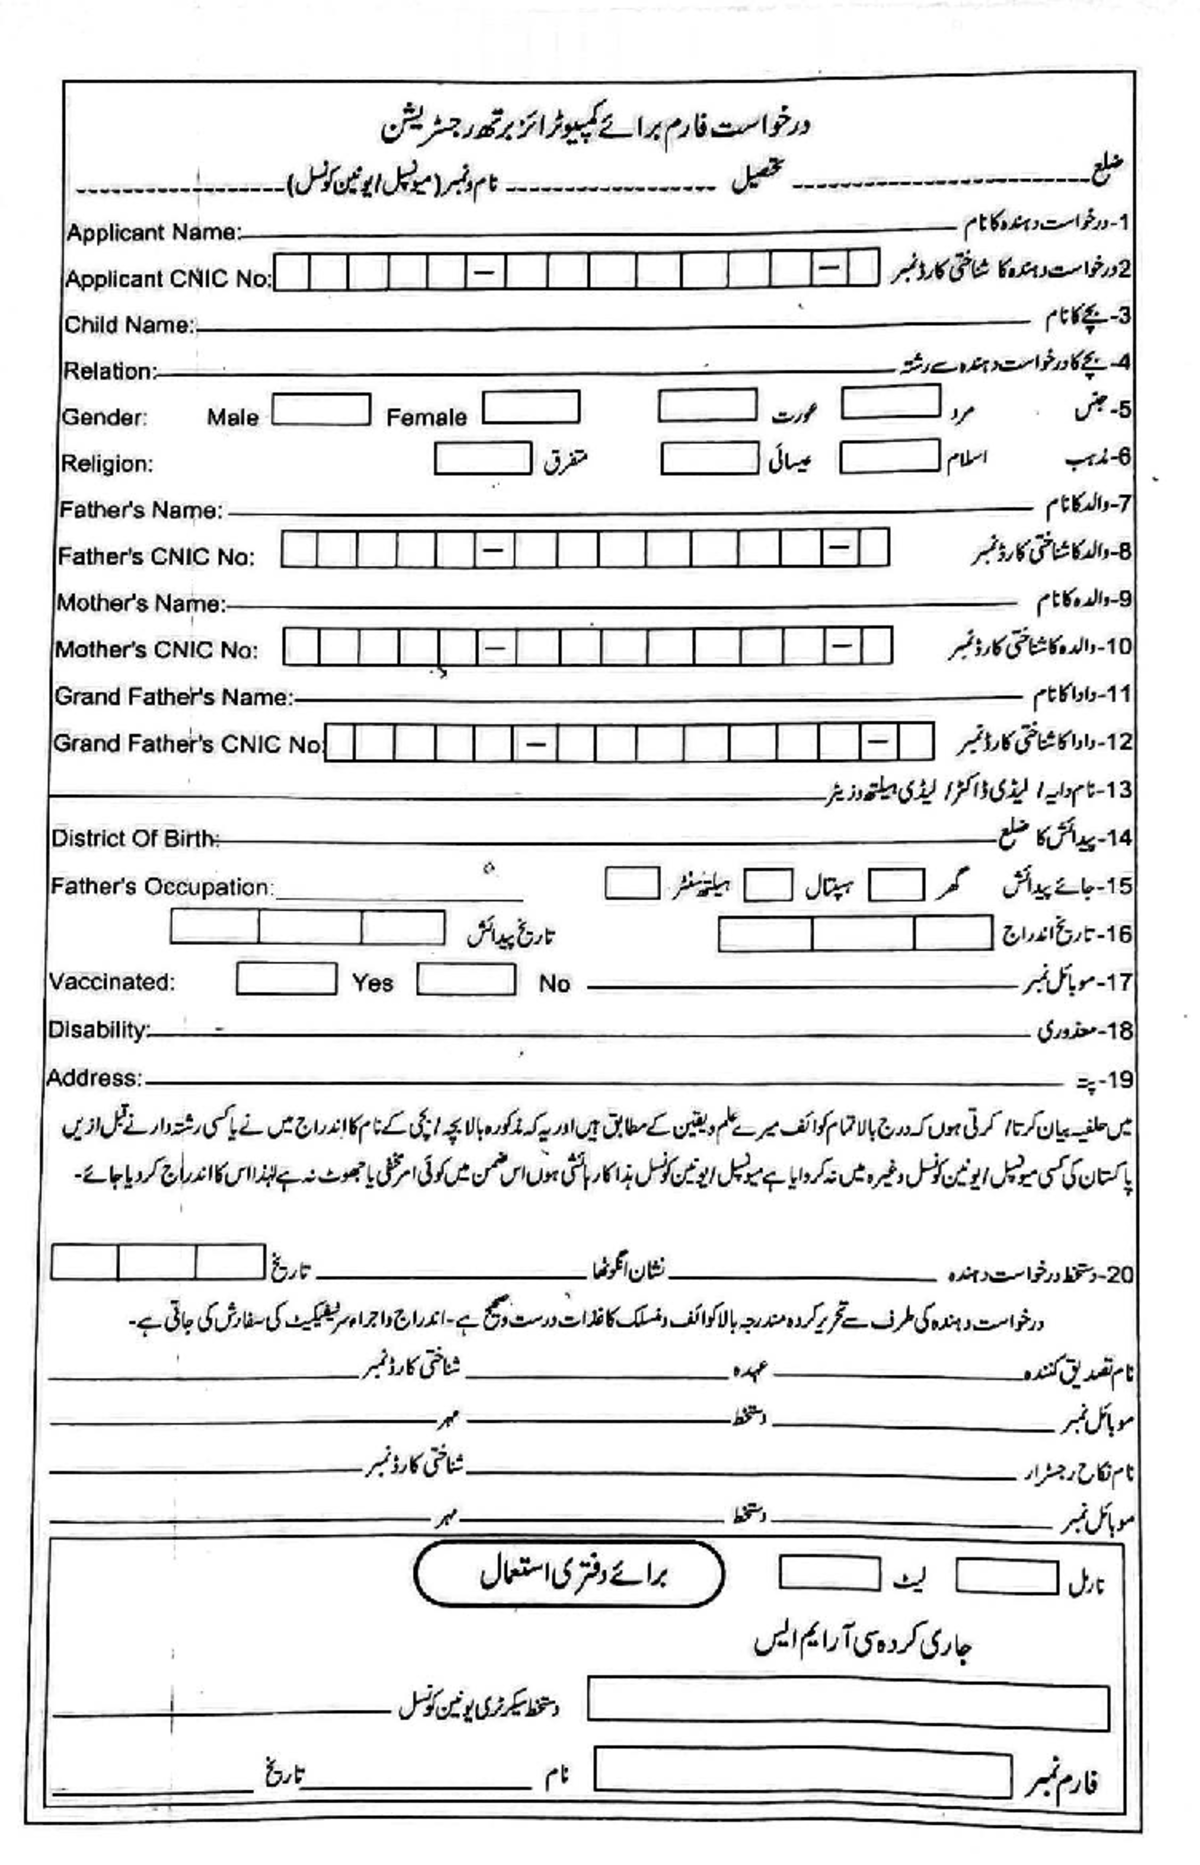 درخواست فارم برائے کمپیوٹرائز برتھ رجسٹریشن
ضلع ---------- تحصیل ---------- نام و نمبر (میونسپل / یونین کونسل) ----------
Applicant Name: 1-درخواست دہندہ کا نام
Applicant CNIC No: – – 2درخواست دہندہ کا شناختی کارڈ نمبر
Child Name: 3-بچے کا نام
Relation: 4-بچے کا درخواست دہندہ سے رشتہ
Gender: Male Female عورت مرد 5-جنس
Religion: متفرق عیسائی اسلام 6-مذہب
Father's Name: 7-والد کا نام
Father's CNIC No: – – 8-والد کا شناختی کارڈ نمبر
Mother's Name: 9-والدہ کا نام
Mother's CNIC No: – – 10-والدہ کا شناختی کارڈ نمبر
Grand Father's Name: 11-دادا کا نام
Grand Father's CNIC No: – – 12-دادا کا شناختی کارڈ نمبر
13-نام دایہ / لیڈی ڈاکٹر / لیڈی ہیلتھ وزیٹر
District Of Birth: 14-پیدائش کا ضلع
Father's Occupation: ہیلتھ سنٹر ہسپتال گھر 15-جائے پیدائش
تاریخ پیدائش 16-تاریخ اندراج
Vaccinated: Yes No 17-موبائل نمبر
Disability: 18-معذوری
Address: 19-پتہ
میں حلفیہ بیان کرتا / کرتی ہوں کہ درج بالا تمام کوائف میرے علم و یقین کے مطابق ہیں اور یہ کہ مذکورہ بالا بچہ / بچی کے نام کا اندراج میں نے یا کسی رشتہ دار نے قبل ازیں
پاکستان کی کسی میونسپل / یونین کونسل وغیرہ میں نہ کروایا ہے میونسپل / یونین کونسل ہذا کا رہائشی ہوں اس ضمن میں کوئی امر مخفی یا جھوٹ نہ ہے لہٰذا اس کا اندراج کر دیا جائے-
20-دستخط درخواست دہندہ نشان انگوٹھا تاریخ
درخواست دہندہ کی طرف سے تحریر کردہ مندرجہ بالا کوائف و منسلک کاغذات درست و صحیح ہے-اندراج و اجراء سرٹیفکیٹ کی سفارش کی جاتی ہے-
نام تصدیق کنندہ عہدہ شناختی کارڈ نمبر
موبائل نمبر دستخط مہر
نام نکاح رجسٹرار شناختی کارڈ نمبر
موبائل نمبر دستخط مہر
نارمل لیٹ برائے دفتری استعمال
جاری کردہ سی آر ایم ایس
دستخط سیکرٹری یونین کونسل
فارم نمبر نام تاریخ